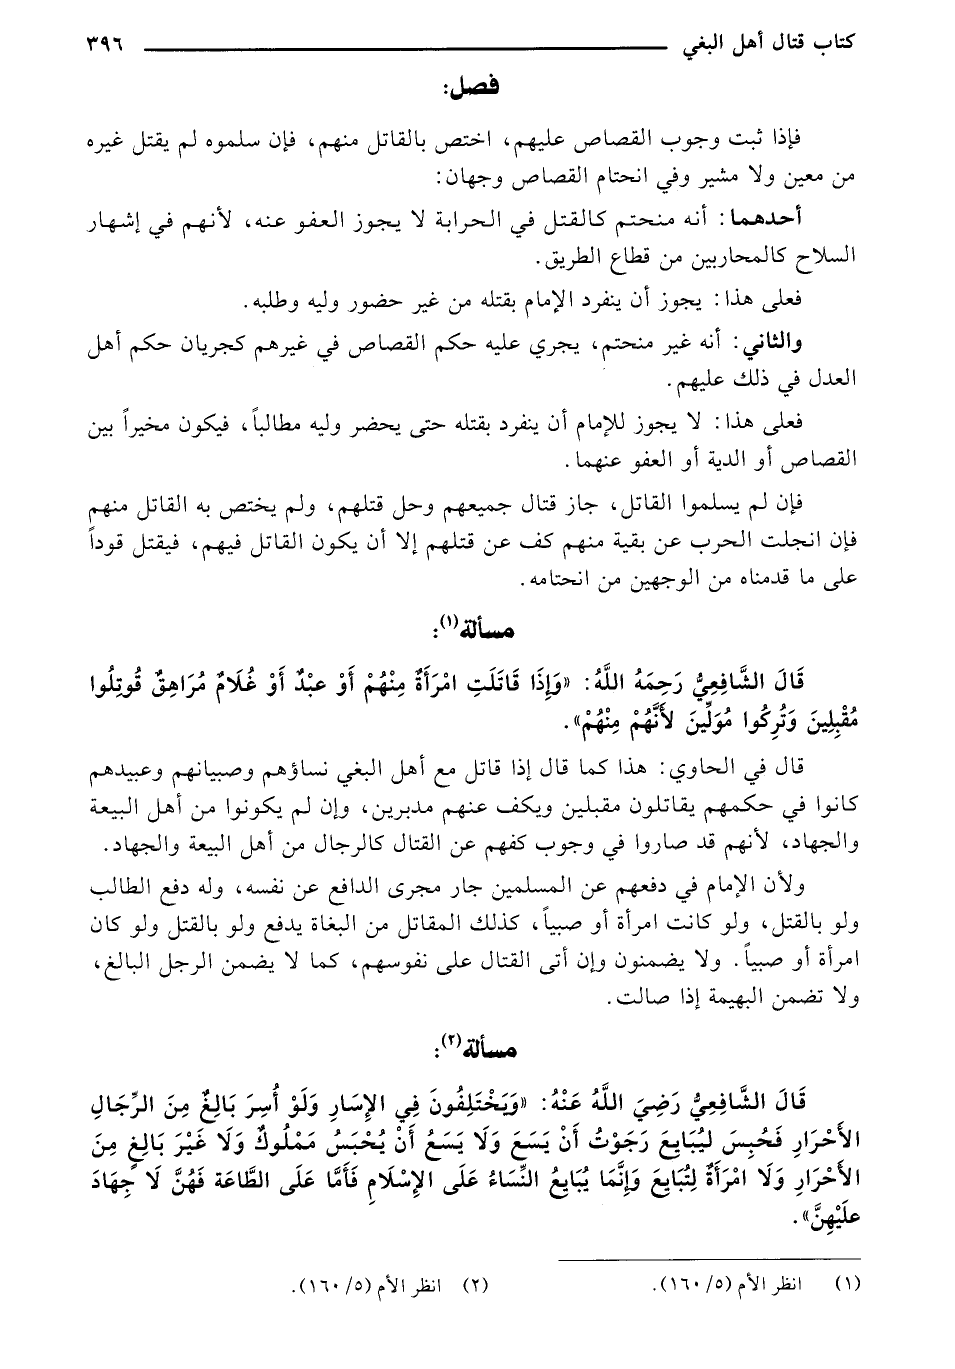 كتاب قتال أهل البغي ٣٩٦
فصل:
فإذا ثبت وجوب القصاص عليهم، اختص بالقاتل منهم، فإن سلموه لم يقتل غيره
من معين ولا مشير وفي انحتام القصاص وجهان:
أحدهما: أنه منحتم كالقتل في الحرابة لا يجوز العفو عنه، لأنهم في إشهار
السلاح كالمحاربين من قطاع الطريق.
فعلى هذا: يجوز أن ينفرد الإمام بقتله من غير حضور وليه وطلبه.
والثاني: أنه غير منحتم، يجري عليه حكم القصاص في غيرهم كجريان حكم أهل
العدل في ذلك عليهم.
فعلى هذا: لا يجوز للإمام أن ينفرد بقتله حتى يحضر وليه مطالباً، فيكون مخيراً بين
القصاص أو الدية أو العفو عنهما.
فإن لم يسلموا القاتل، جاز قتال جميعهم وحل قتلهم، ولم يختص به القاتل منهم
فإن انجلت الحرب عن بقية منهم كف عن قتلهم إلا أن يكون القاتل فيهم، فيقتل قوداً
على ما قدمناه من الوجهين من انحتامه.
مسألة(١):
قَالَ الشَّافِعِيُّ رَحِمَهُ اللَّهُ: «وَإِذَا قَاتَلَتِ امْرَأَةٌ مِنْهُمْ أَوْ عبْدٌ أَوْ غُلَامٌ مُرَاهِقٌ قُوتِلُوا
مُقْبِلِينَ وَتُرِكُوا مُوَلِّينَ لأَنَّهُمْ مِنْهُمْ».
قال في الحاوي: هذا كما قال إذا قاتل مع أهل البغي نساؤهم وصبيانهم وعبيدهم
كانوا في حكمهم يقاتلون مقبلين ويكف عنهم مدبرين، وإن لم يكونوا من أهل البيعة
والجهاد، لأنهم قد صاروا في وجوب كفهم عن القتال كالرجال من أهل البيعة والجهاد.
ولأن الإمام في دفعهم عن المسلمين جار مجرى الدافع عن نفسه، وله دفع الطالب
ولو بالقتل، ولو كانت امرأة أو صبياً، كذلك المقاتل من البغاة يدفع ولو بالقتل ولو كان
امرأة أو صبياً. ولا يضمنون وإن أتى القتال على نفوسهم، كما لا يضمن الرجل البالغ،
ولا تضمن البهيمة إذا صالت.
مسألة(٢):
قَالَ الشَّافِعِيُّ رَضِيَ اللَّهُ عَنْهُ: «وَيَخْتَلِفُونَ فِي الإِسَارِ وَلَوْ أُسِرَ بَالِغٌ مِنَ الرِّجَالِ
الأَحْرَارِ فَحُبِسَ لِيُبَايِعَ رَجَوْتُ أَنْ يَسَعَ وَلَا يَسَعُ أَنْ يُحْبَسُ مَمْلُوكٌ وَلَا غَيْرَ بَالِغٍ مِنَ
الأَحْرَارِ وَلَا امْرَأَةٌ لِتُبَايِعَ وَإِنَّمَا يُبَايِعُ النِّسَاءُ عَلَى الإِسْلَامِ فَأَمَّا عَلَى الطَّاعَة فَهُنَّ لَا جِهَادَ
علَيْهِنَّ».
(١) انظر الأم (٥/ ١٦٠). (٢) انظر الأم (٥/ ١٦٠).